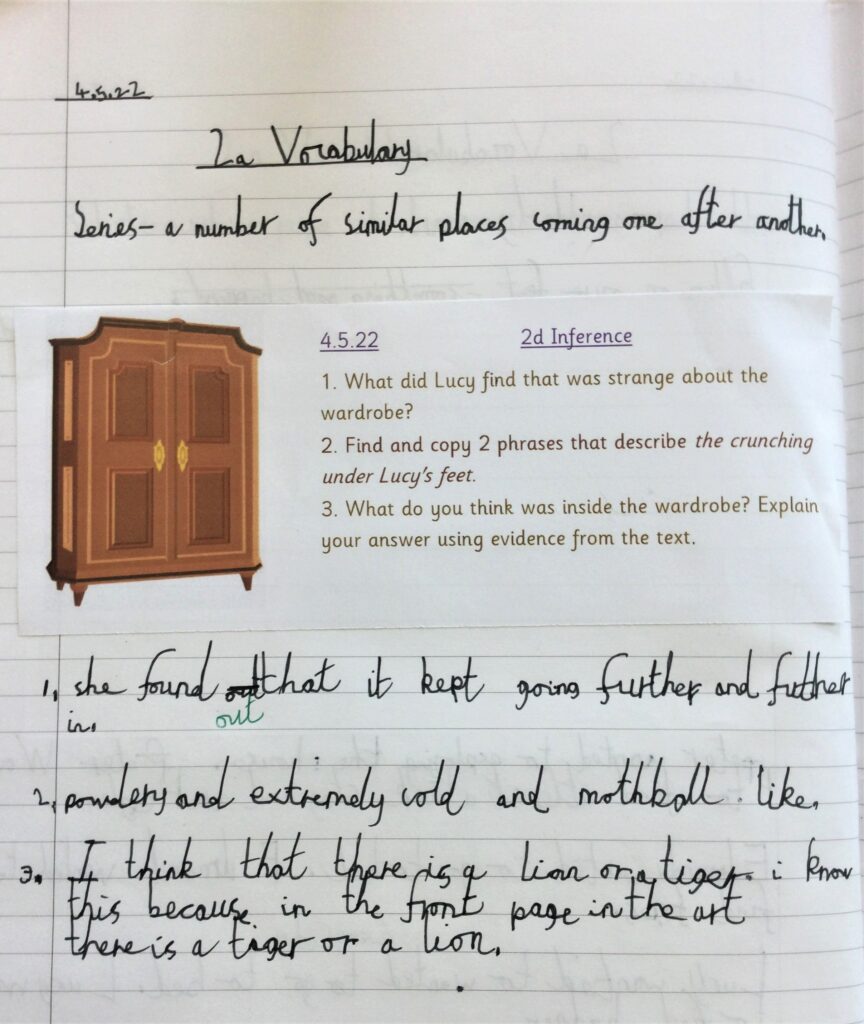 4.5.22
2a Vocabulary
Series- a number of similar places coming one after another.
4.5.22 2d Inference
1. What did Lucy find that was strange about the
wardrobe?
2. Find and copy 2 phrases that describe the crunching
under Lucy's feet.
3. What do you think was inside the wardrobe? Explain
your answer using evidence from the text.
1. she found out that it kept going further and futher
in.
out
2. powdery and extremely cold and mothball. like.
3. I think that there is a lion or a tiger. i know
this because in the front page in the art
there is a tiger or a lion.